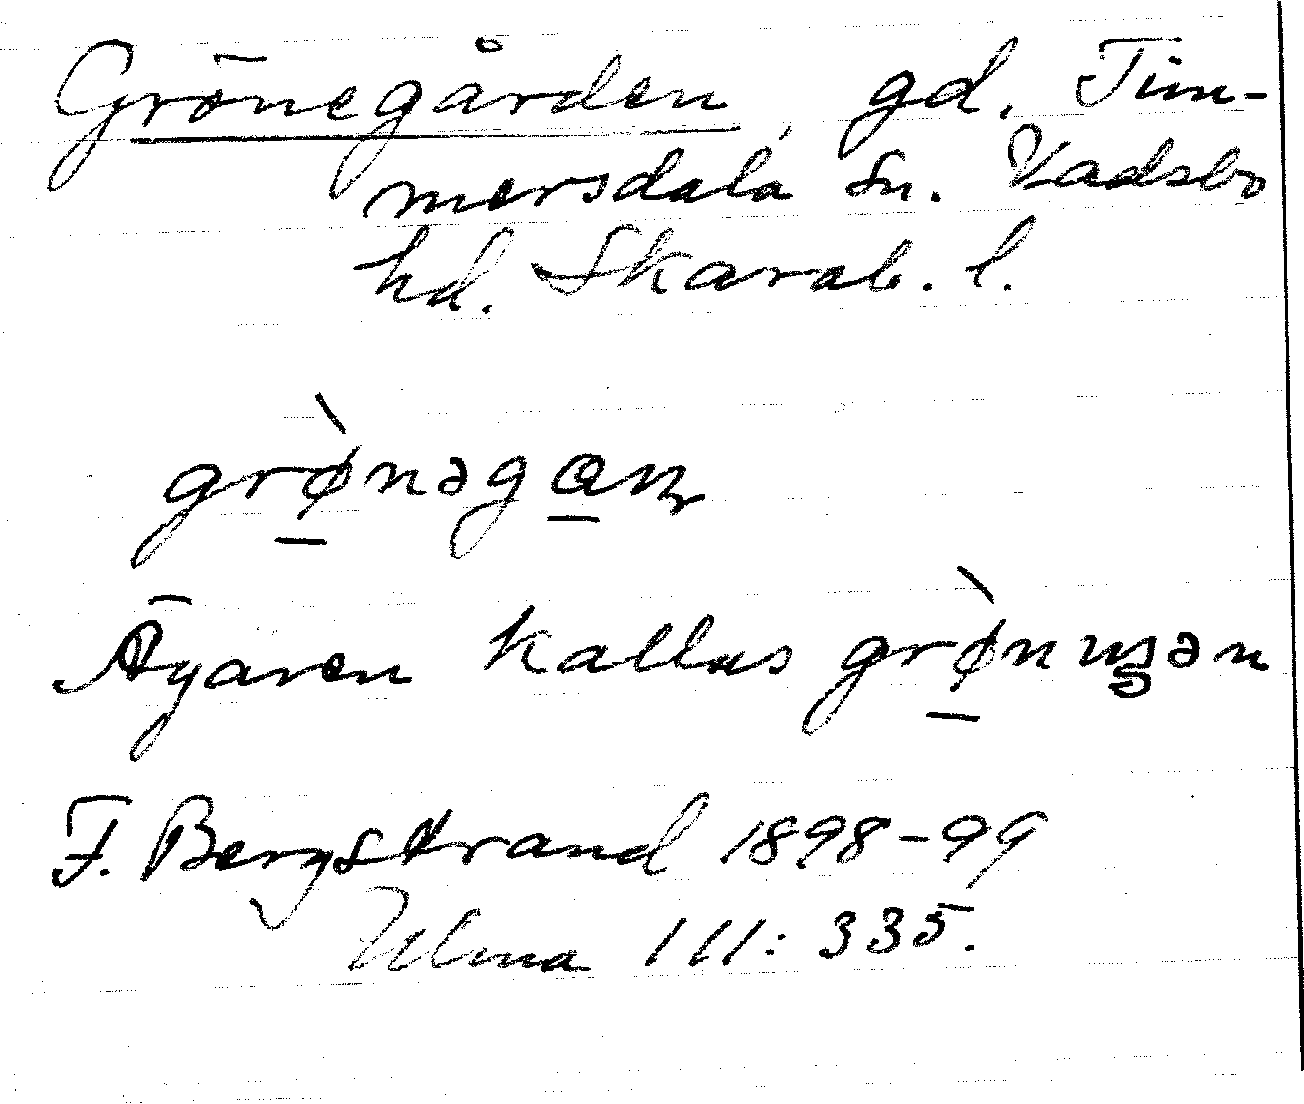 Grönegården, gd. Tim-
mersdala sn. Vadsbo
hd. Skarab. l.
grø̱̀nəga̱ɳ
Ägaren kallas grø̱̀nuʂən
F. Bergstrand 1898-99
Ulma 111: 335.